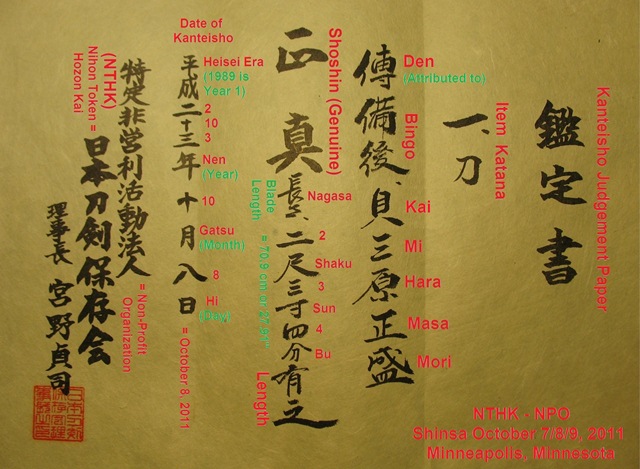 Kanteisho Judgement Paper
鑑定書
Item Katana
一、刀
Den
(Attributed to)
Bingo
Kai
Mi
Hara
Masa
Mori
傳備後、貝三原正盛
Shoshin (Genuine)
正真
Nagasa
2
Shaku
3
Sun
4
Bu
長さ、二尺三寸四分有之
Length
Blade
Length
Date of
Kanteisho
Heisei Era
(1989 is
Year 1)
2
10
3
Nen
(Year)
10
Gatsu
(Month)
8
Hi
(Day)
= October 8, 2011
平成二十三年十月八日
特定非営利活動法人
= Non-Profit
Organization
(NTHK)
Nihon Token =
Hozon Kai
日本刀剣保存会
理事長 宮野貞司
NTHK - NPO
Shinsa October 7/8/9, 2011
Minneapolis, Minnesota